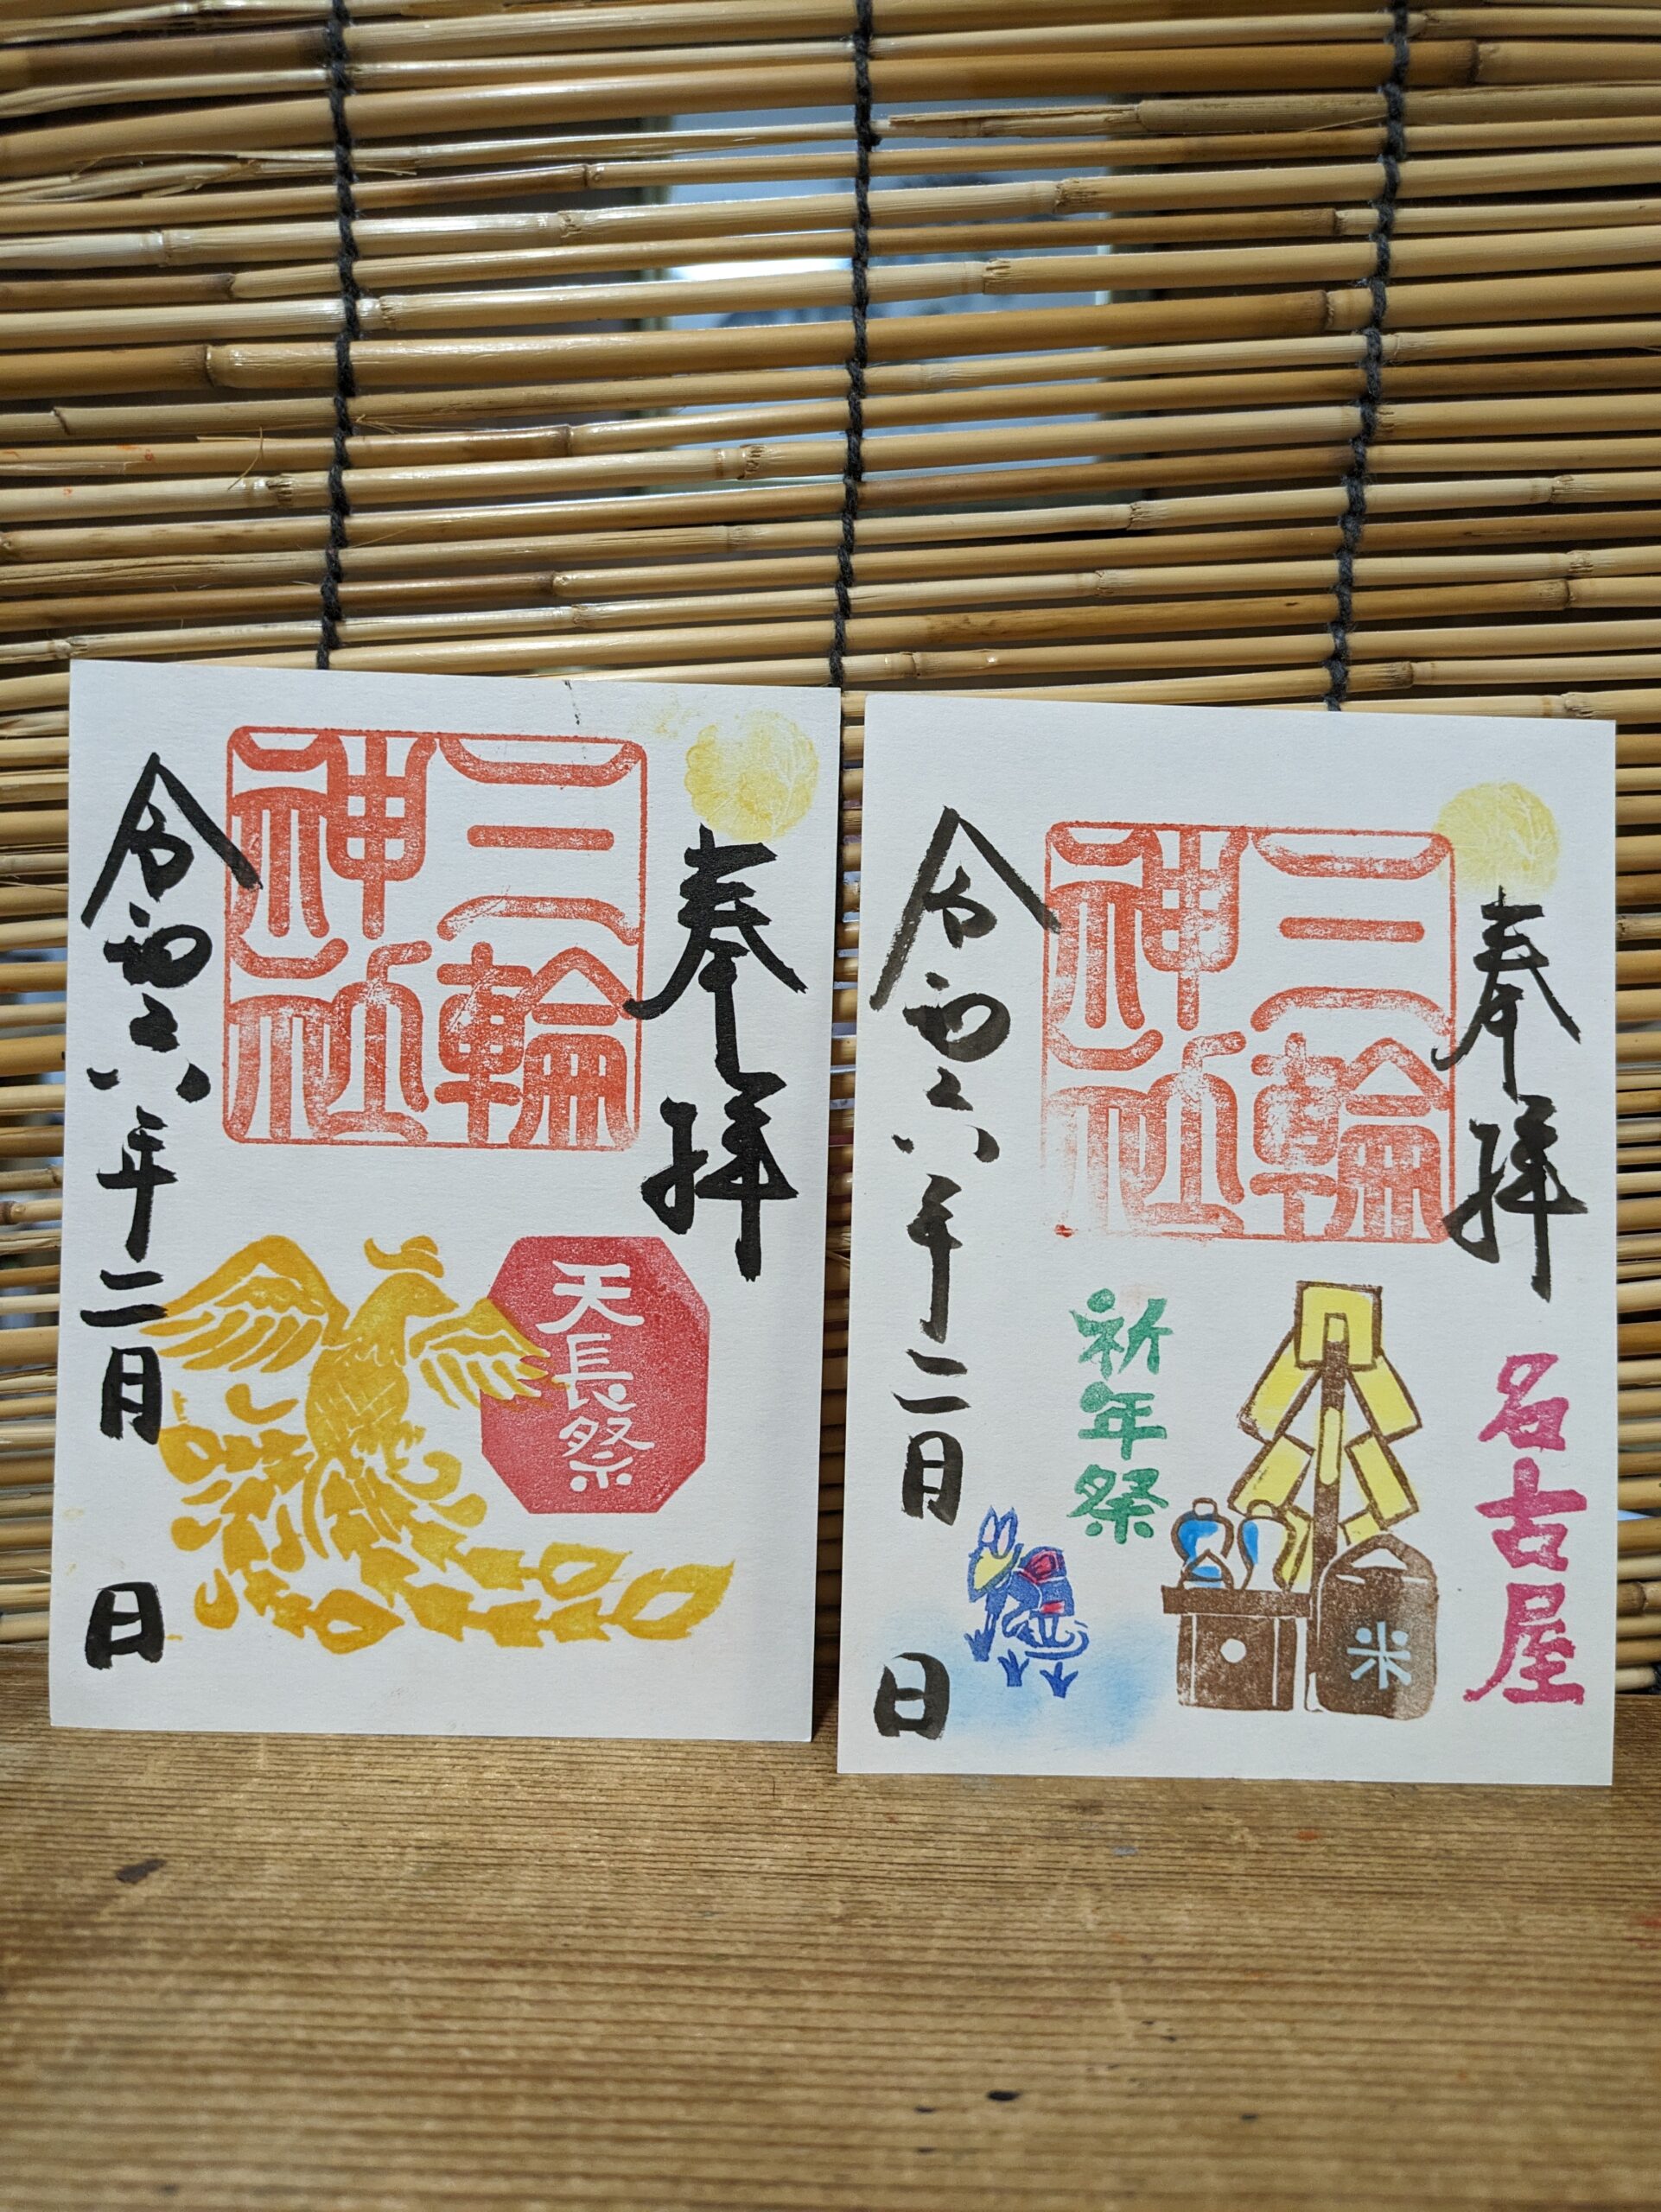 奉拝
三輪
神社
天長祭
令和六年二月 日
奉拝
名古屋
三輪
神社
祈年祭
米
令和六年二月 日